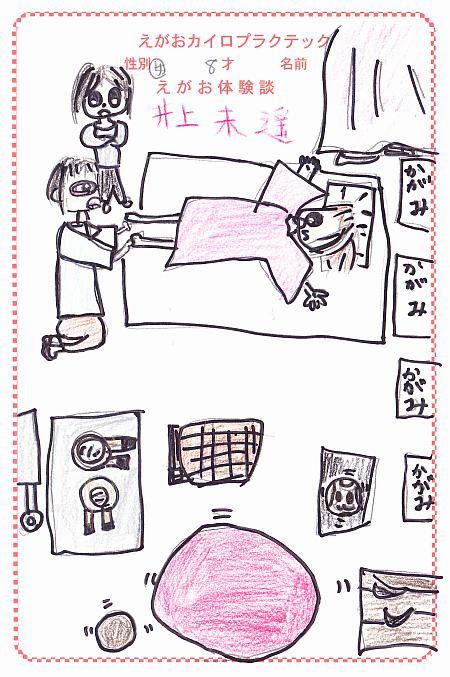 えがおカイロプラクテック
性別 女 8才 名前
えがお体験談
井上未遥
かがみ
かがみ
かがみ
かがみ